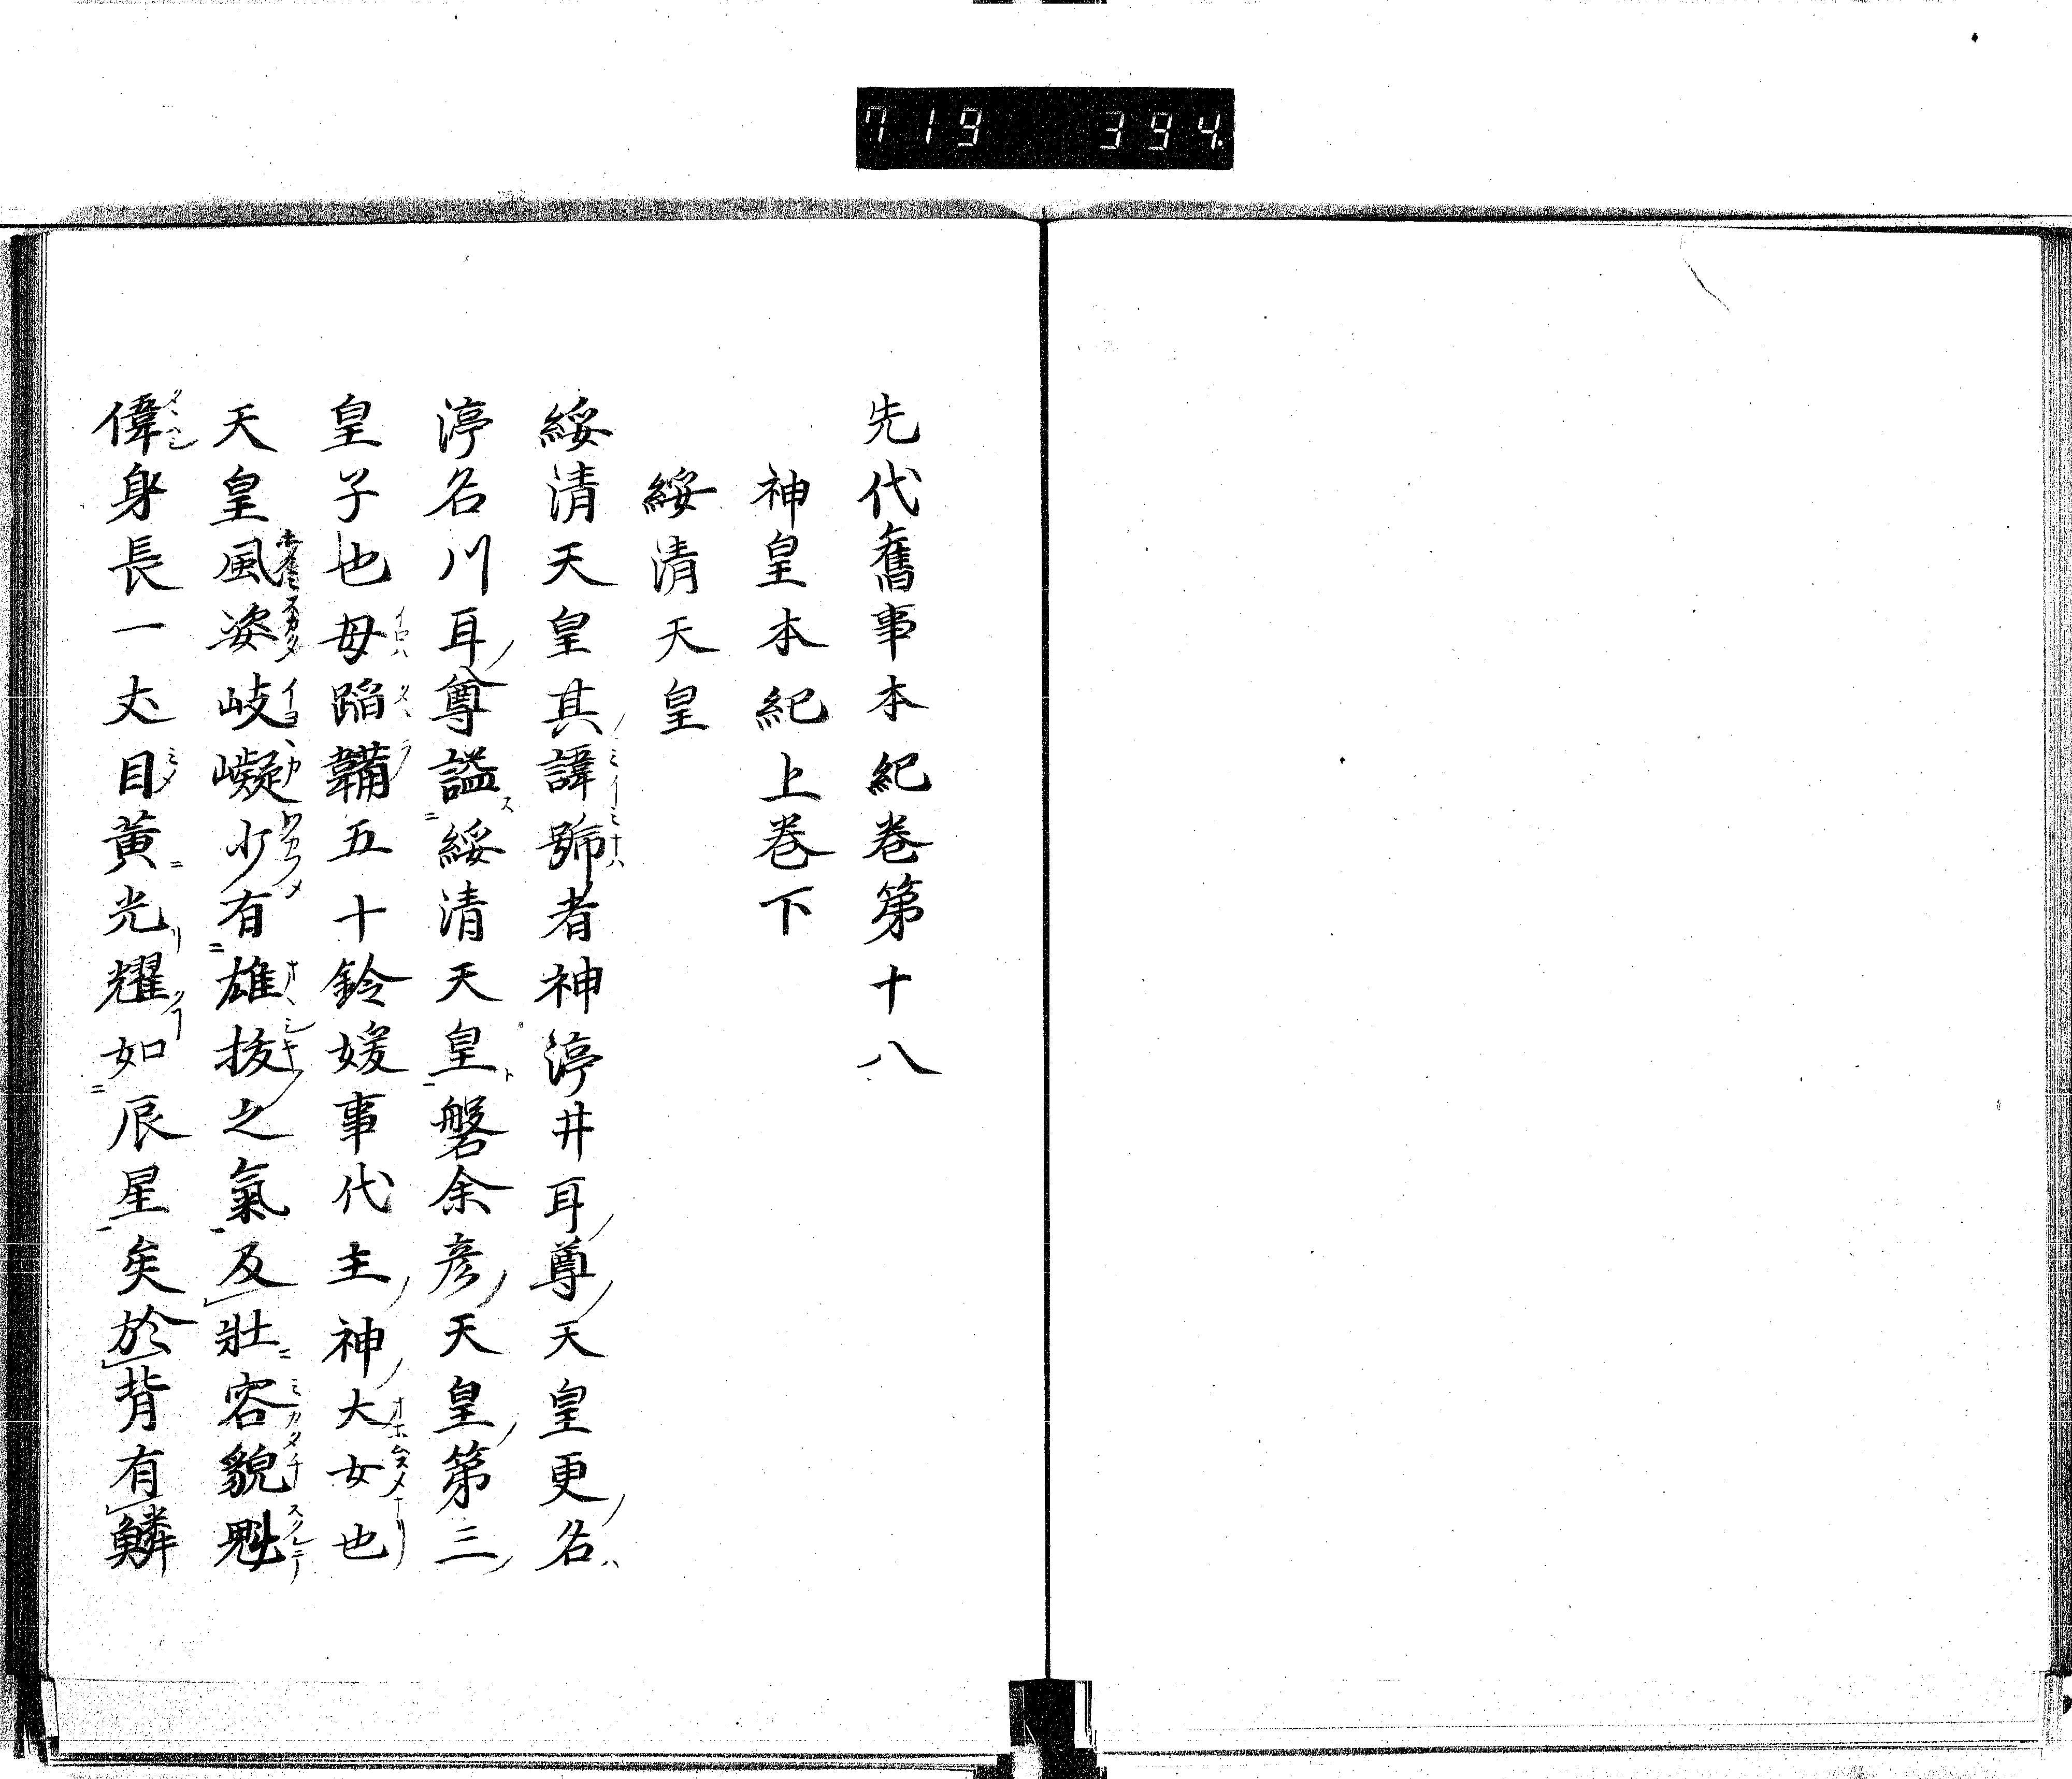 719 394
先代舊事本紀卷第十八
神皇本紀上卷下
綏清天皇
綏清天皇其諱號者神渟井耳尊天皇更名
渟名川耳尊謚綏清天皇磐余彦天皇第三
皇子也母蹈韛五十鈴媛事代主神大女也
天皇風姿岐嶷少有雄拔之氣及壯容貌魁
偉身長一丈目黃光耀如辰星矣於背有鱗